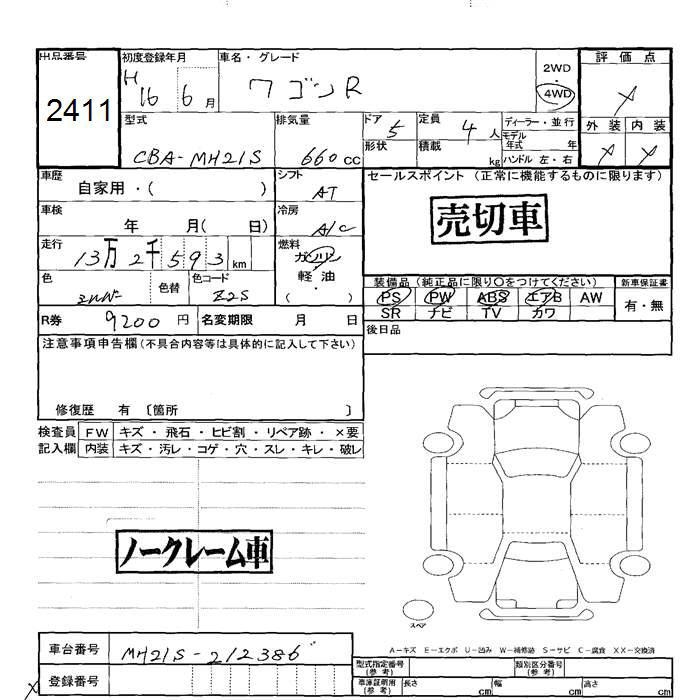 出品番号 初度登録年月 車名・グレード 評価点
2411 H 16 6月 ワゴンR 2WD
4WD
外装 内装
型式 排気量 ドア 定員 ディーラー・並行
CBA-MH21S 660cc 5 4人 モデル年式 年
形状 積載 kg ハンドル 左・右
車歴 自家用・( ) シフト AT セールスポイント (正常に機能するものに限ります)
車検 年 月( 日) 冷房 A/C 売切車
走行 13万2千593km 燃料 ガソリン
軽・油
( )
色 色替 色コード Z2S 装備品 (純正品に限り○をつけてください) 新車保証書
PS PW ABS エアB AW 有・無
SR ナビ TV カワ
R券 9200円 名変期限 月 日 後日品
注意事項申告欄(不具合内容等は具体的に記入して下さい)
修復歴 有 〔箇所 〕
検査員 FW キズ・飛石・ヒビ割・リペア跡・×要
記入欄 内装 キズ・汚レ・コゲ・穴・スレ・キレ・破レ
ノークレーム車
スペア
A-キズ E-エクボ U-凹み W-補修跡 S-サビ C-腐食 XX-交換済
車台番号 MH21S-212386 型式指定番号(参考) 類別区分番号(参考)
登録番号 車庫証明用(参考) 長さ cm 幅 cm 高さ cm